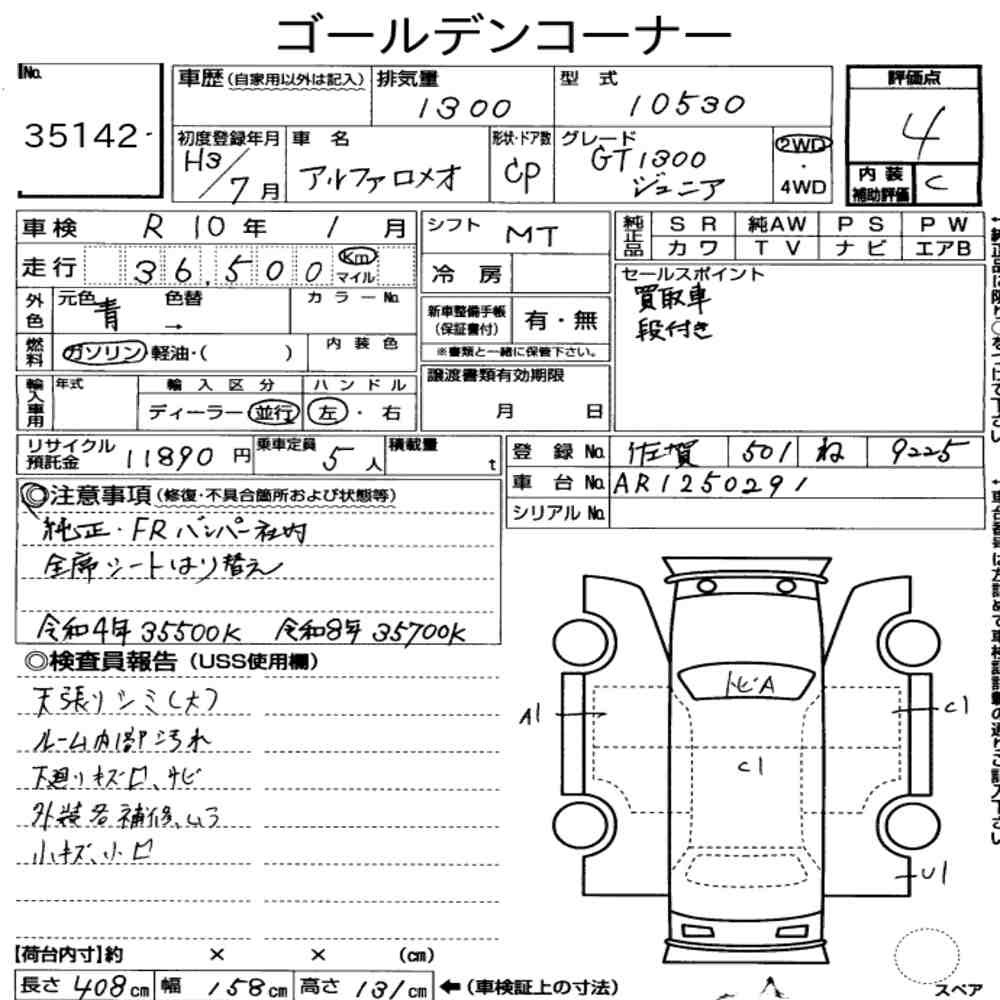 ゴールデンコーナー
No. 35142
車歴(自家用以外は記入)
排気量 1300
型式 10530
評価点 4
初度登録年月 H3/7月
車名 アルファロメオ
形状・ドア数 CP
グレード GT1300 ジュニア
2WD・4WD
内装補助評価 C
車検 R 10年 1月
シフト MT
純正品 SR 純AW PS PW
カワ TV ナビ エアB
走行 36,500 Km マイル
冷房
セールスポイント
買取車
段付き
外色 元色 青 色替 → カラーNo.
新車整備手帳(保証書付) 有・無
※書類と一緒に保管下さい。
燃料 ガソリン 軽油・( ) 内装色
譲渡書類有効期限 月 日
輸入車用 年式 輸入区分 ハンドル
ディーラー 並行 左・右
リサイクル預託金 11890円 乗車定員 5人 積載量 t
登録No. 佐賀 501 ね 9225
車台No. AR1250291
シリアルNo.
◎注意事項(修復・不具合箇所および状態等)
純正・FRバンパー社内
全席シートはり替え
令和4年35500K 令和8年35700K
◎検査員報告(USS使用欄)
天張りシミ(大)
ルーム内部汚れ
下廻りキズ凹、サビ
外装各補修、ムラ
小キズ、小凹
トビA
A1
C1
C1
U1
【荷台内寸】約 × × (cm)
長さ 408cm 幅 158cm 高さ 131cm ←(車検証上の寸法)
スペア